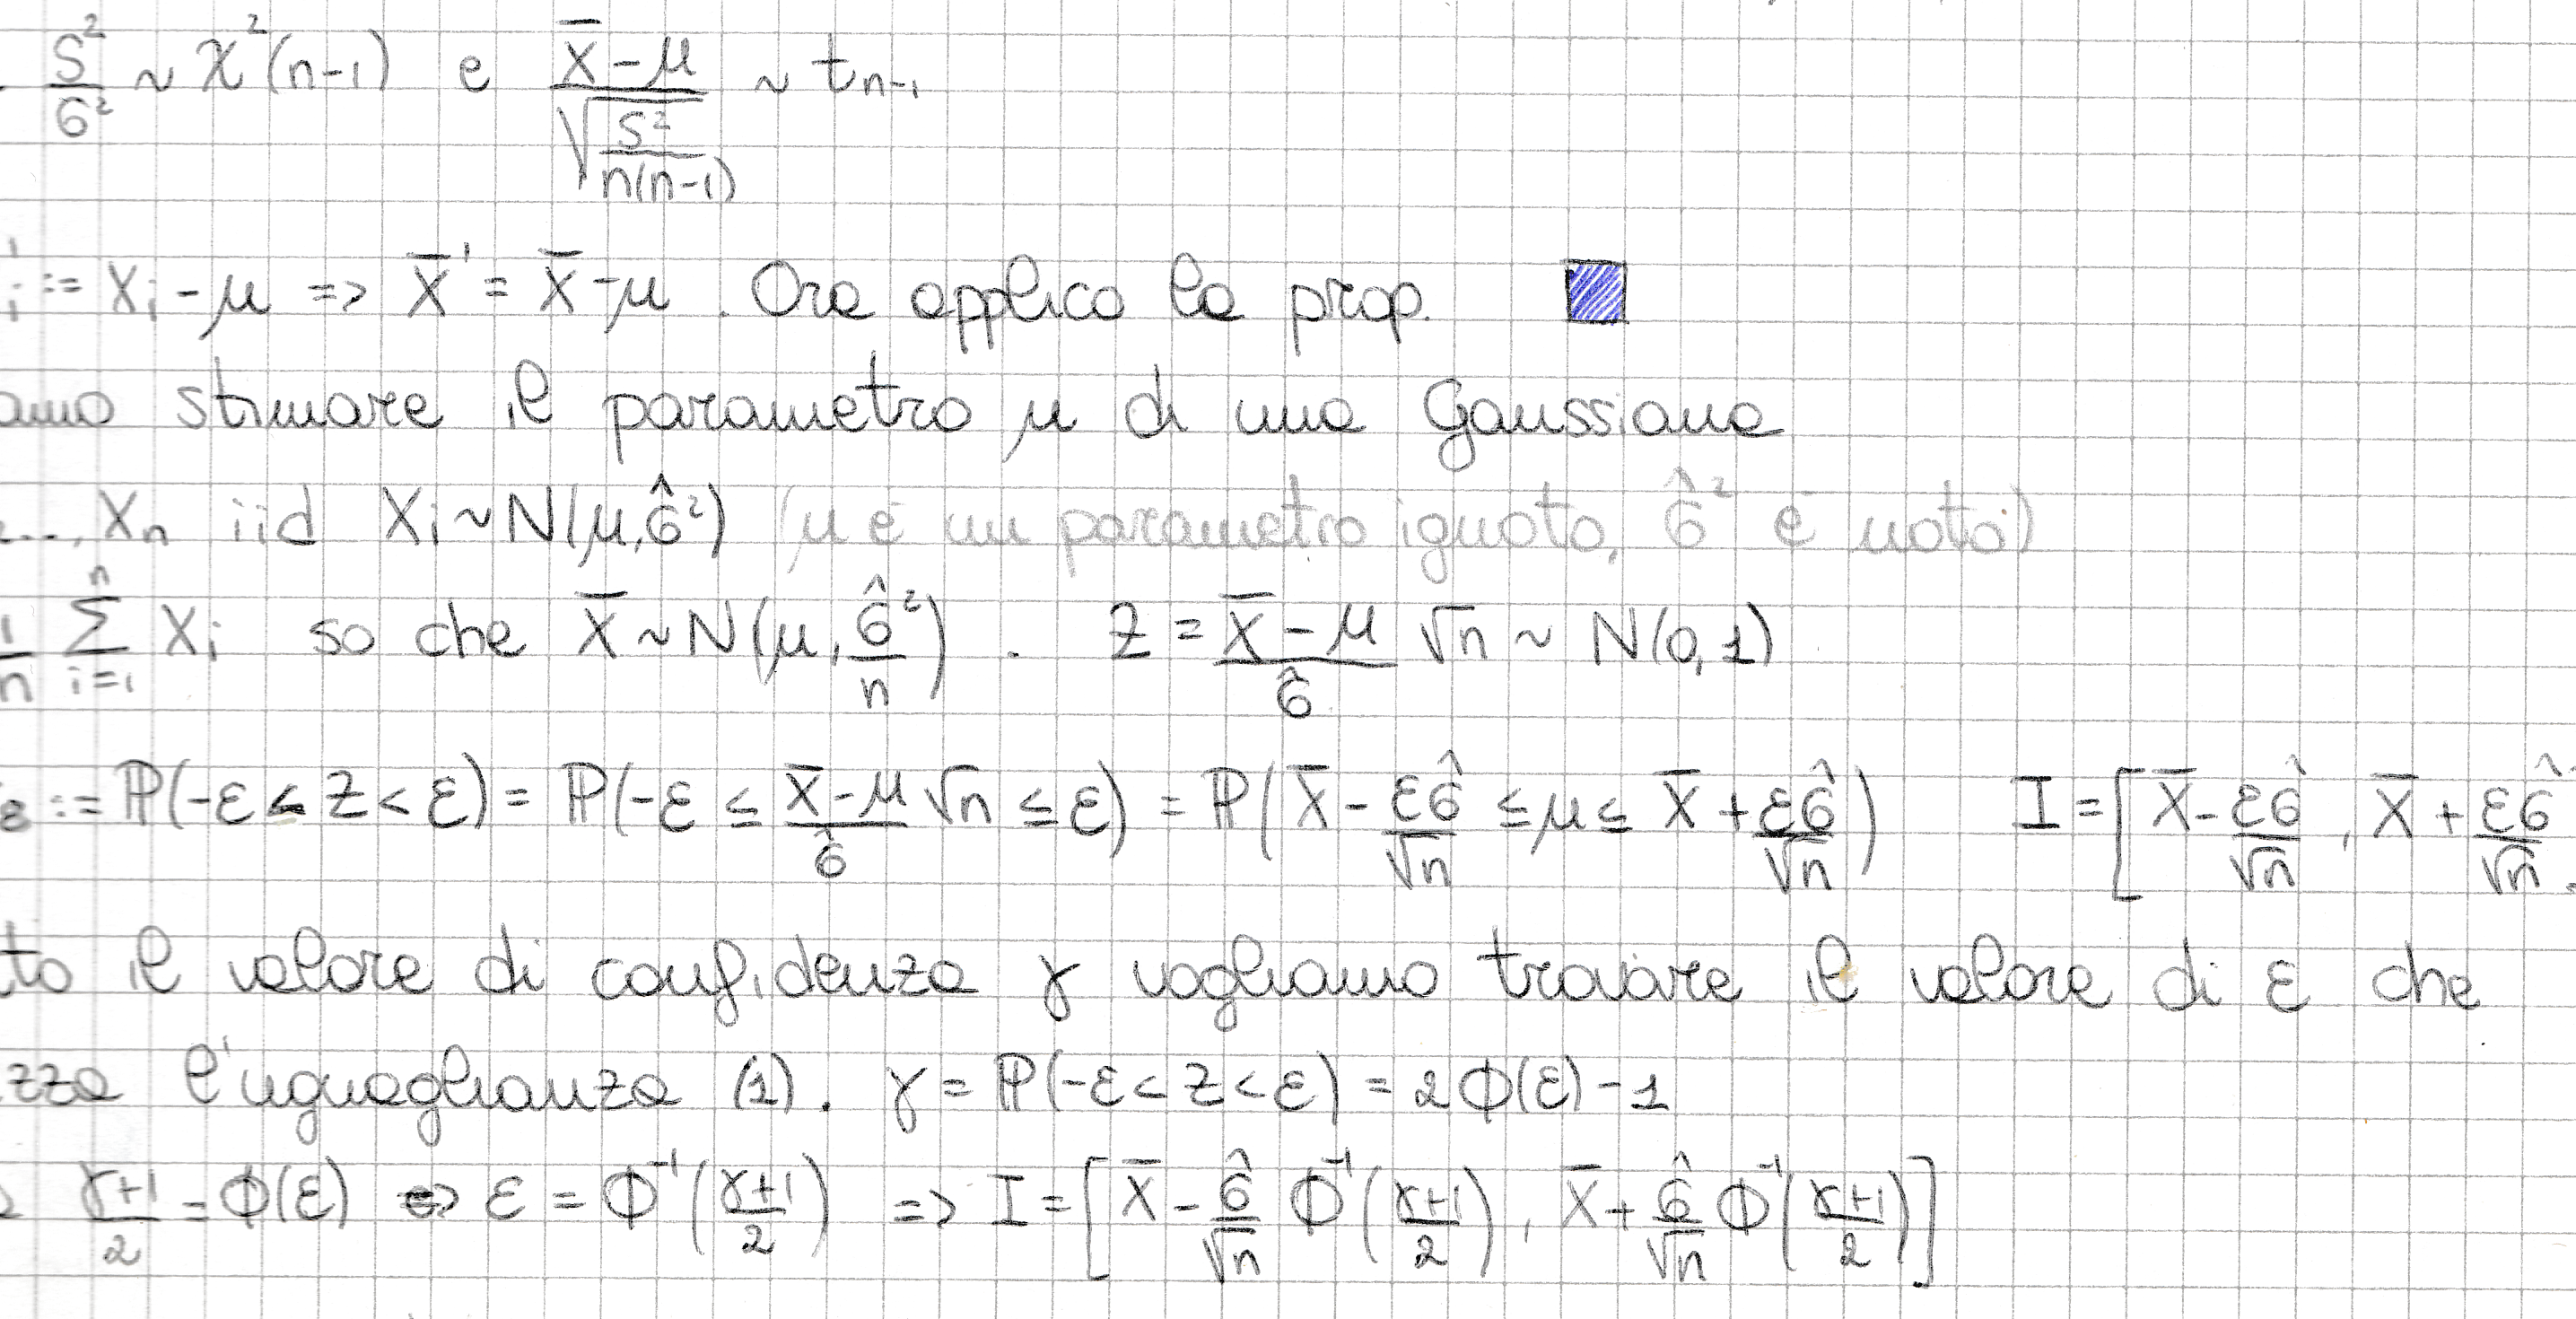 S²/σ² ~ χ²(n-1) e (X̄-μ)/√(S²/(n(n-1))) ~ t_{n-1}
'_i := X_i - μ => X̄' = X̄ - μ . Ora applico la prop.
amo stimare il parametro μ di una Gaussiana
..., X_n iid X_i ~ N(μ, σ̂²) (μ è un parametro ignoto, σ̂² è noto)
1/n ∑_{i=1}^{n} X_i so che X̄ ~ N(μ, σ̂²/n) . Z = (X̄-μ)/σ̂ √n ~ N(0,1)
ε := ℙ(-ε < Z < ε) = ℙ(-ε ≤ (X̄-μ)/σ̂ √n ≤ ε) = ℙ(X̄ - εσ̂/√n ≤ μ ≤ X̄ + εσ̂/√n) I = [X̄ - εσ̂/√n , X̄ + εσ̂/√n
to il valore di confidenza γ vogliamo trovare il valore di ε che
zza l'uguaglianza (1). γ = ℙ(-ε < Z < ε) = 2Φ(ε) - 1
(γ+1)/2 = Φ(ε) <=> ε = Φ⁻¹((γ+1)/2) => I = [X̄ - σ̂/√n Φ⁻¹((γ+1)/2) , X̄ + σ̂/√n Φ⁻¹((γ+1)/2)]